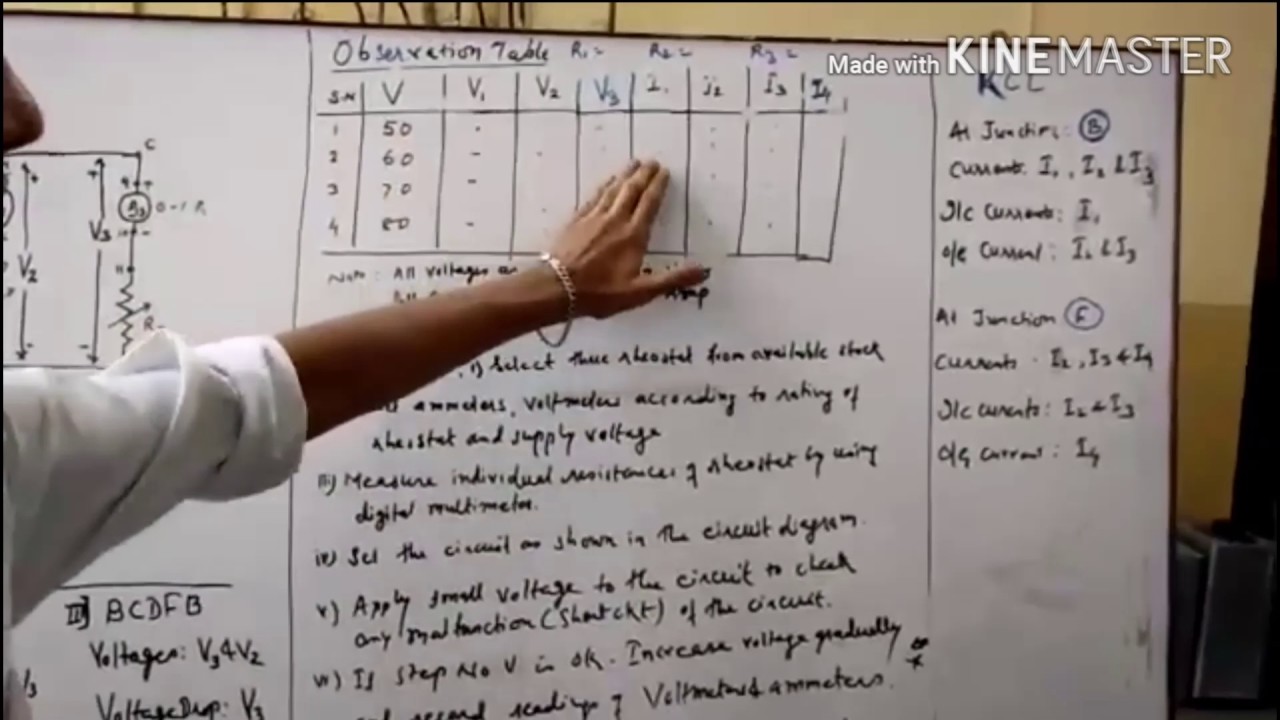 Made with KINEMASTER
Observation Table R1 = R2 = R3 =
S.N V V1 V2 V3 I1 I2 I3 I4
1 50
2 60
3 70
4 80
Note: All voltages
i) Select three rheostat from available stock
ammeters, voltmeters according to rating of
rheostat and supply voltage
iii) Measure individual resistances of rheostat by using
digital multimeter.
iv) Set the circuit as shown in the circuit diagram.
v) Apply small voltage to the circuit to check
any malfunction (Short ckt) of the circuit.
vi) If step No V is ok. Increase voltage gradually
and record readings of Voltmeters & ammeters.
KCL
At Junction: B
Currents: I1, I2 & I3
I/c currents: I1
o/g current: I2 & I3
At Junction F
Currents: I2, I3 & I4
I/c currents: I2 & I3
o/g current: I4
C
V3
V2
II) BCDFB
Voltages: V3 & V2
Voltage Drop: V3